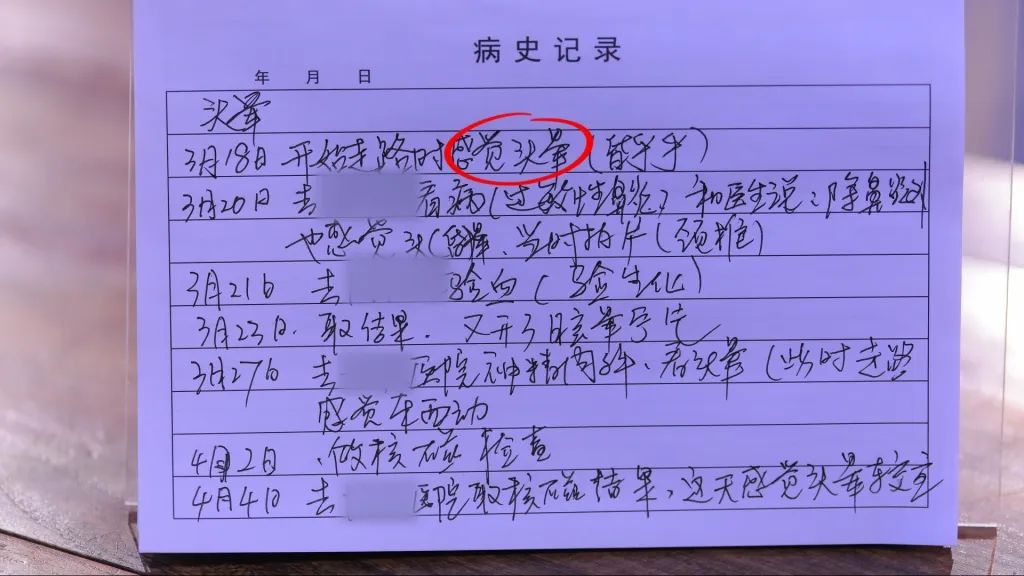 病史记录
年 月 日
头晕
3月18日 开始走路时感觉头晕(
3月20日 去 看病(过敏性鼻炎)和医生说:除鼻炎外
也感觉头晕、当时拍片(颈椎)
3月21日 去 验血(验生化)
3月23日、取结果.又开了眩晕宁片
3月27日 去 医院神精内科、看头晕(此时走路
感觉东西动
4月2日、做核磁检查
4月4日 去 医院取核磁结果,这天感觉头晕较重